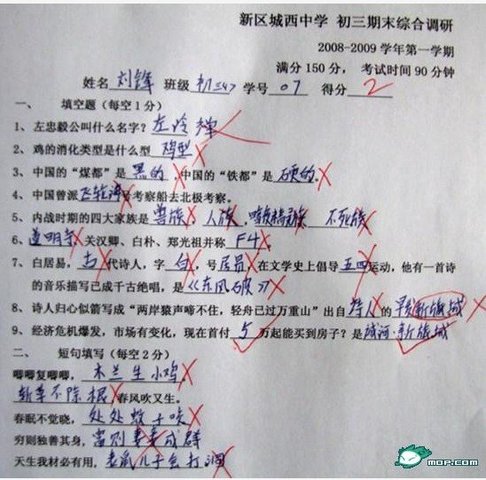 新区城西中学 初三期末综合调研
2008-2009 学年第一学期
满分 150 分， 考试时间 90 分钟
姓名 刘锋 班级 初三<4> 学号 07 得分 2
一、 填空题（每空 1 分）
1、左忠毅公叫什么名字？左冷禅
2、鸡的消化类型是什么型 鸡型
3、中国的“煤都”是 黑的，中国的“铁都”是 硬的。
4、中国曾派 飞轮海 号考察船去北极考察。
5、内战时期的四大家族是 兽族、人族、暗夜精灵族 不死族
6、道明寺 关汉卿、白朴、郑光祖并称 F4。
7、白居易，古 代诗人，字 白，号 居易，在文学史上倡导 五四 运动，他有一首诗
的音乐描写已成千古绝唱，是 《东风破》
8、诗人归心似箭写成“两岸猿声啼不住，轻舟已过万重山”出自 诗人 的 新旗城
9、经济危机爆发，市场有变化，现在首付 5 万起能买到房子？是 城河·新旗城
二、 短句填写（每空 2 分）
唧唧复唧唧， 木兰生小鸡。
斩草不除根，春风吹又生。
春眠不觉晓， 处处蚊子咬
穷则独善其身， 富则妻妾成群
天生我材必有用， 老鼠儿子会打洞
MOP.COM